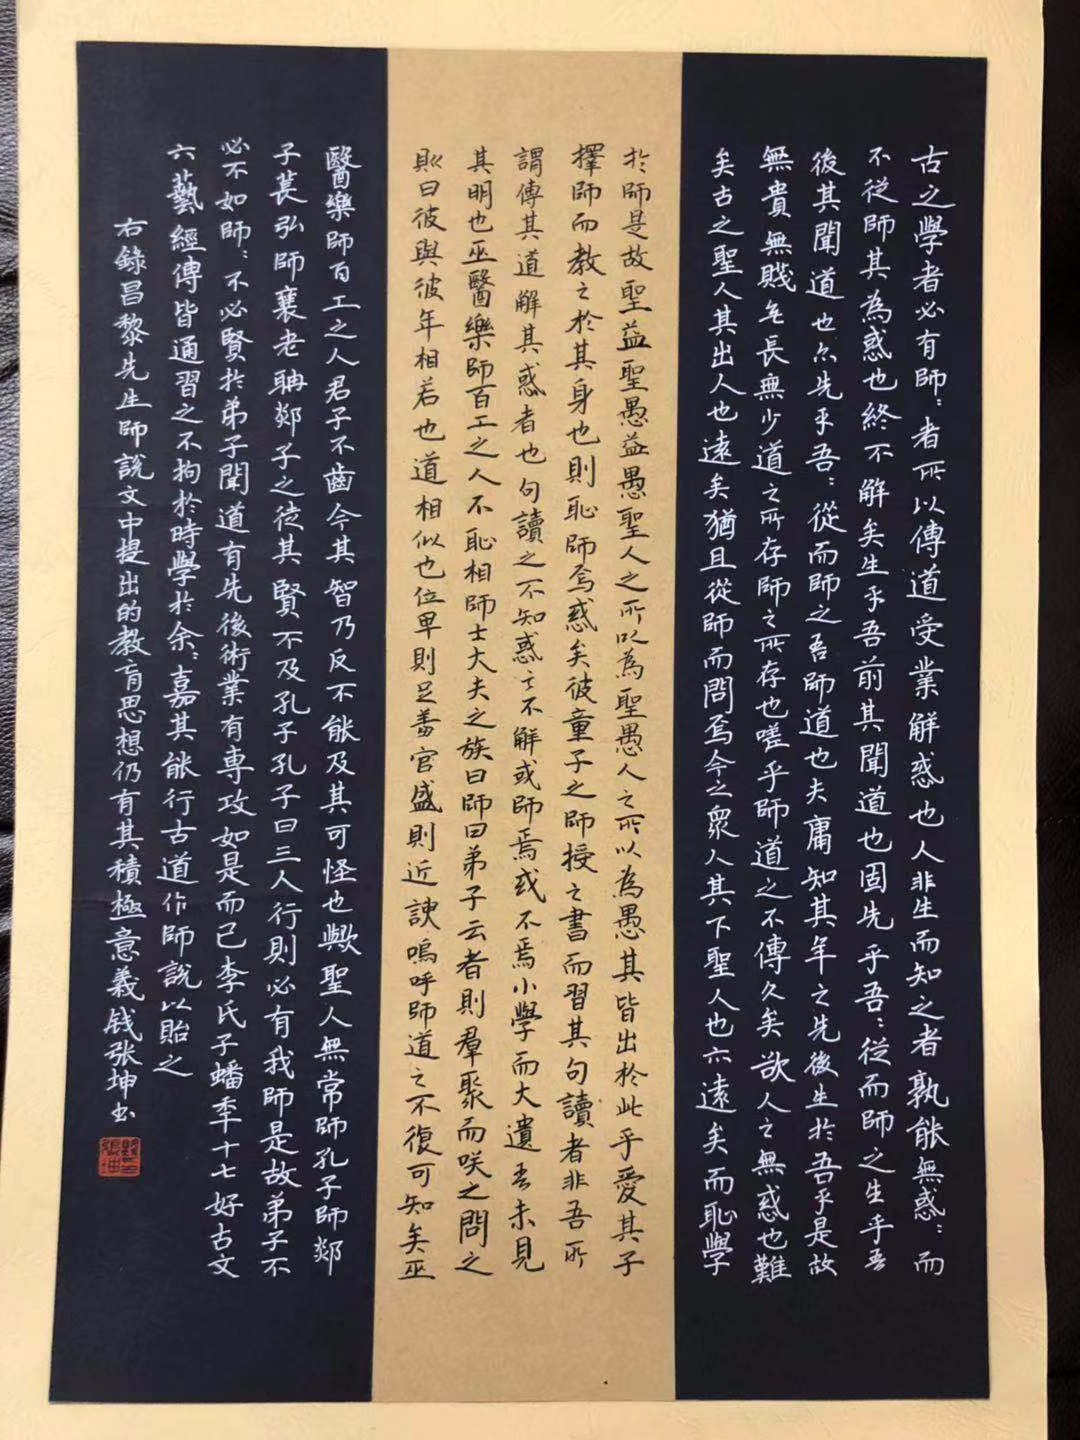 古之學者必有師：者所以傳道受業解惑也人非生而知之者孰能無惑：而
不從師其為惑也終不解矣生乎吾前其聞道也固先乎吾：從而師之生乎吾
後其聞道也亦先乎吾：從而師之吾師道也夫庸知其年之先後生於吾乎是故
無貴無賤無長無少道之所存師之所存也嗟乎師道之不傳久矣欲人之無惑也難
矣古之聖人其出人也遠矣猶且從師而問焉今之眾人其下聖人也亦遠矣而恥學
於師是故聖益聖愚益愚聖人之所以為聖愚人之所以為愚其皆出於此乎愛其子
擇師而教之於其身也則恥師焉惑矣彼童子之師授之書而習其句讀者非吾所
謂傳其道解其惑者也句讀之不知惑之不解或師焉或不焉小學而大遺吾未見
其明也巫醫樂師百工之人不恥相師士大夫之族曰師曰弟子云者則羣聚而咲之問之
則曰彼與彼年相若也道相似也位卑則足羞官盛則近諛嗚呼師道之不復可知矣巫
醫樂師百工之人君子不齒今其智乃反不能及其可怪也歟聖人無常師孔子師郯
子萇弘師襄老聃郯子之徒其賢不及孔子孔子曰三人行則必有我師是故弟子不
必不如師：不必賢於弟子聞道有先後術業有專攻如是而已李氏子蟠季十七好古文
六藝經傳皆通習之不拘於時學於余：嘉其能行古道作師說以貽之
右錄昌黎先生師說文中提出的教育思想仍有其積極意義钱张坤书